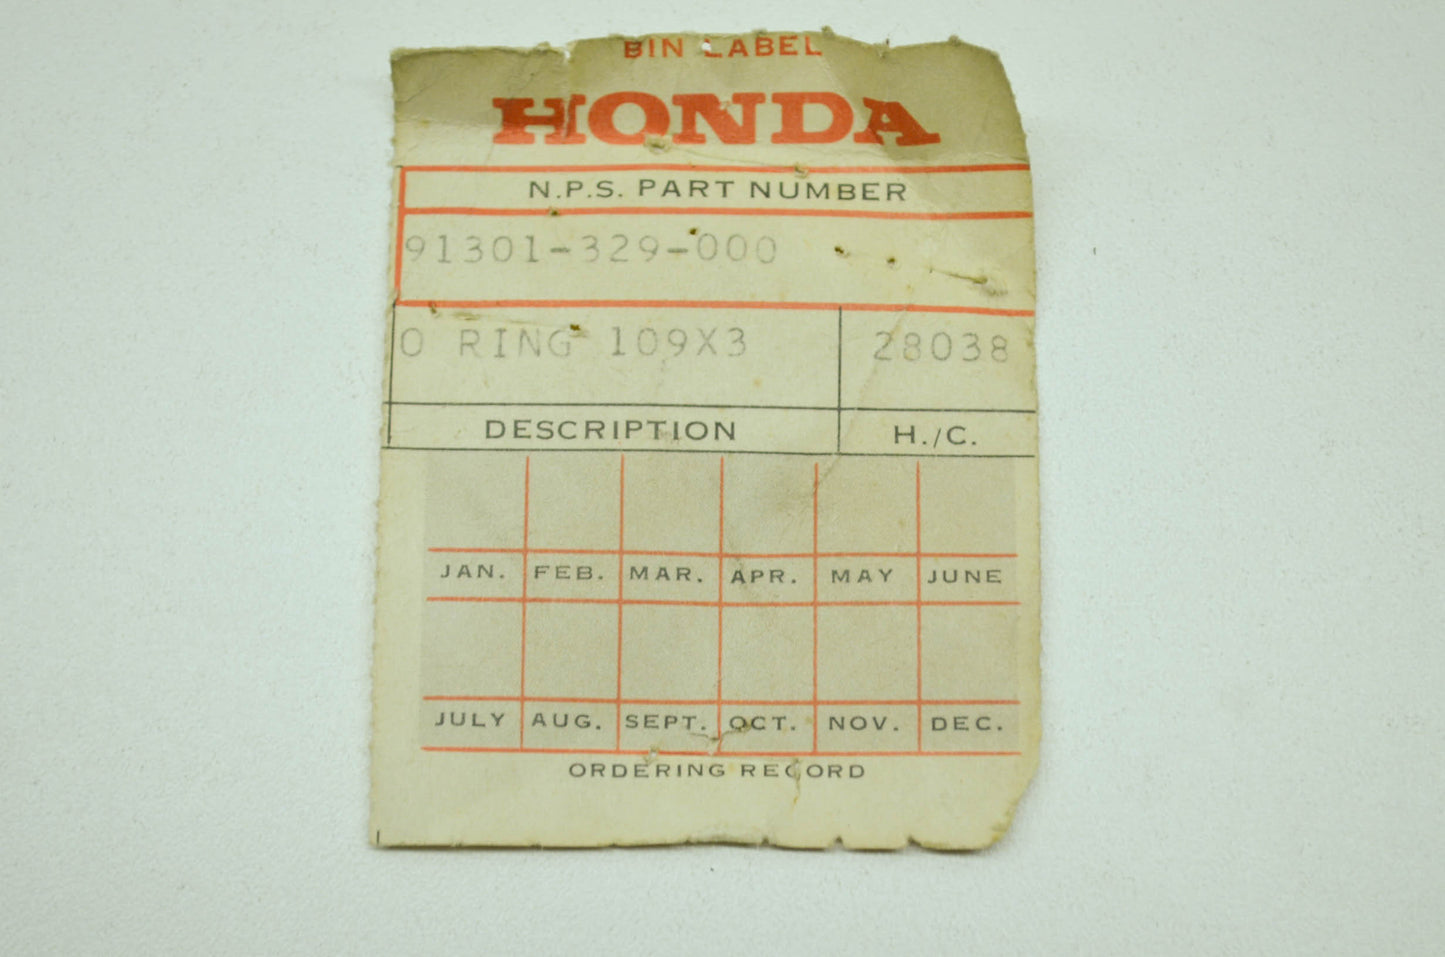 BIN LABEL
HONDA
N.P.S. PART NUMBER
91301-329-000
O RING 109X3 28038
DESCRIPTION H./C.
JAN. FEB. MAR. APR. MAY JUNE
JULY AUG. SEPT. OCT. NOV. DEC.
ORDERING RECORD